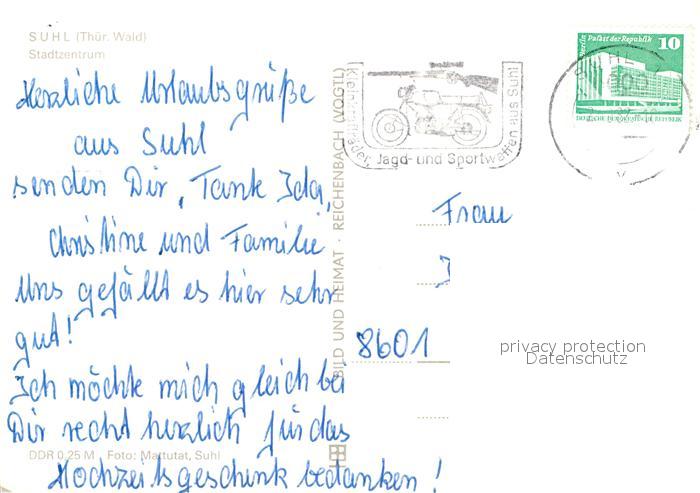 SUHL (Thür. Wald)
Stadtzentrum
Herzliche Urlaubsgrüße
aus Suhl
senden Dir, Tante Ida,
Christine und Familie
Uns gefällt es hier sehr
gut!
Ich möchte mich gleich bei
Dir recht herzlich für das
Hochzeitsgeschenk bedanken!
DDR 0,25 M Foto: Mattutat, Suhl
BILD UND HEIMAT · REICHENBACH (VOGTL)
Kleinkrafträder, Jagd- und Sportwaffen aus Suhl
Berlin Palast der Republik 10
DEUTSCHE DEMOKRATISCHE REPUBLIK
Frau
J
8601
privacy protection
Datenschutz